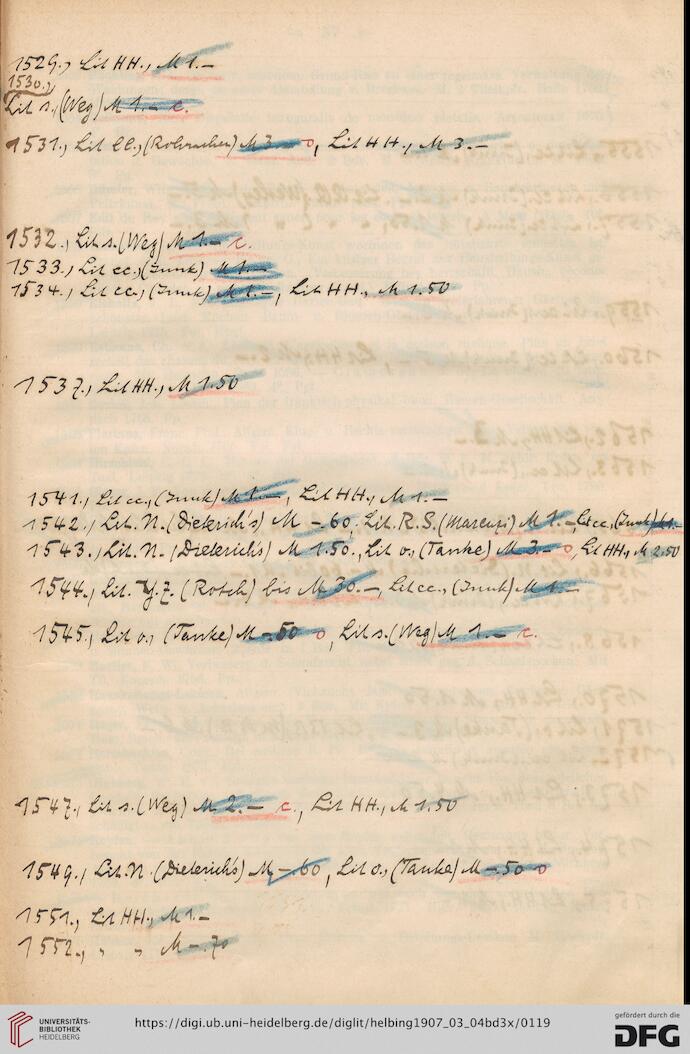 1529., Lit HH., M 1.–
1530.,
Lit s., (Weg) M 1.– c.
1531., Lit ll., (Rohracher) M 3.– o, Lit HH., M 3.–
1532., Lit s. (Weg) M 1.– c.
1533., Lit cc., (Junk) M 1.–
1534., Lit cc., (Junk) M 1.–, Lit HH., M 1.50
1537., Lit HH., M 1.50
1541., Lit cc., (Junk) M 1.–, Lit HH., M 1.–
1542., Lit. N. (Dieterich's) M –60, Lit. R.S. (Marcuzi) M 1.–, Lit cc., (Junk) M 1.–
1543., Lit. N. (Dieterich's) M 1.50., Lit o., (Tanke) M 3.– o, Lit HH., M 2.50
1544., Lit. Y.Z. (Rosch) bis M 30.–, Lit cc., (Junk) M 1.–
1545., Lit o., (Tanke) M –.50 o, Lit s. (Weg) M 1.– c.
1547., Lit s. (Weg) M 2.– c., Lit HH., M 1.50
1549., Lit. N. (Dieterich's) M –.60, Lit o., (Tanke) M –.50 o
1551., Lit HH., M 1.–
1552., " " M –.70
UNIVERSITÄTS-
BIBLIOTHEK
HEIDELBERG
https://digi.ub.uni-heidelberg.de/diglit/helbing1907_03_04bd3x/0119
gefördert durch die
DFG